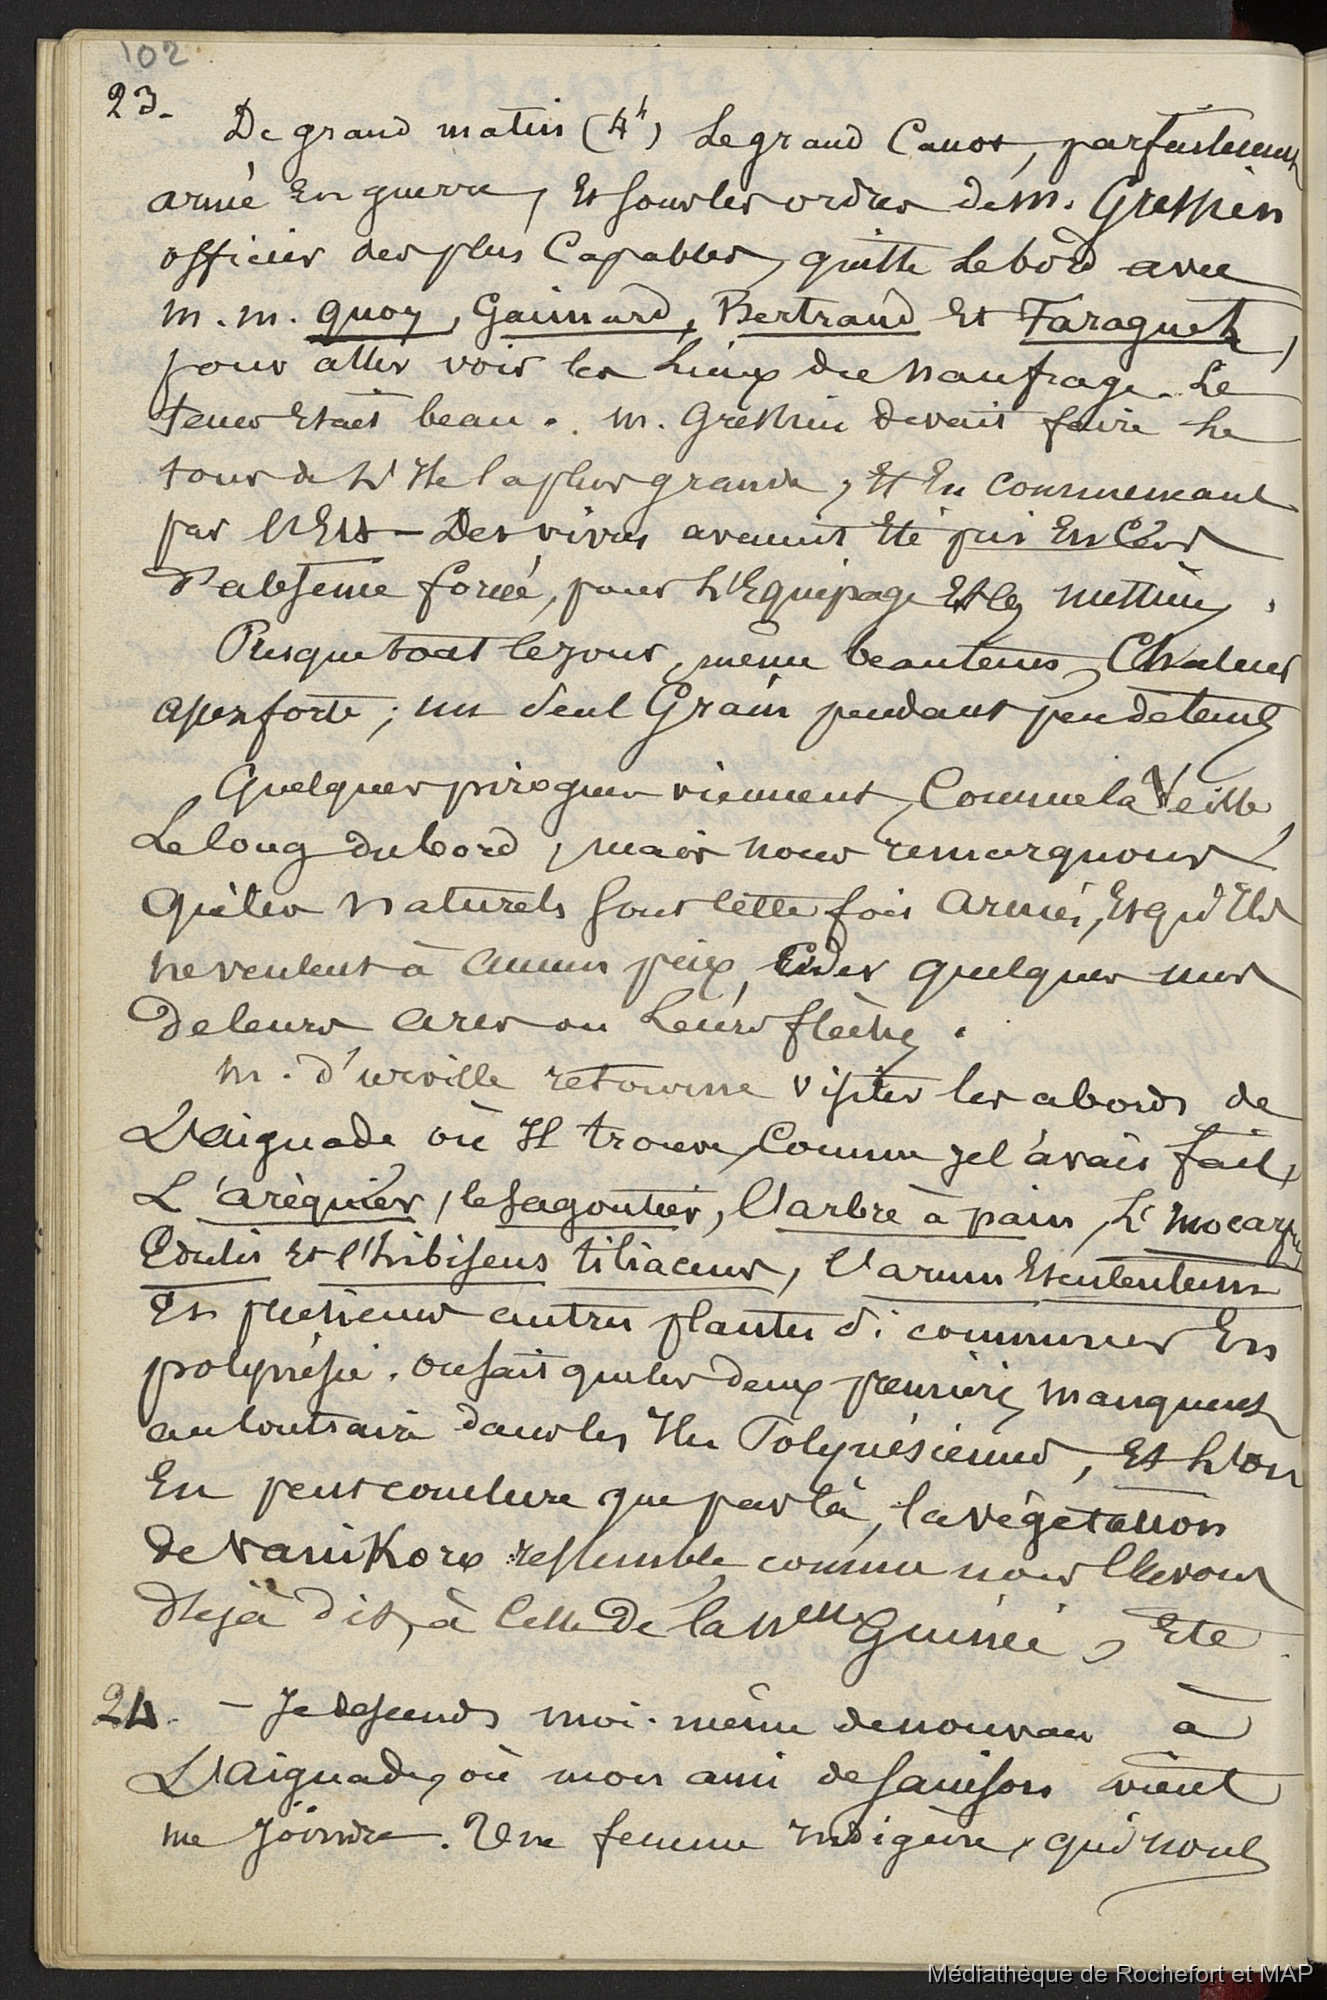 102
23.
De grand matin (4h) le grand Canot, parfaitement
armé En guerre, Et sous les ordres de M. Gressien
officier des plus Capables, quitte le bord avec
m. m. Quoy, Gaimard, Bertrand Et Faraguet,
pour aller voir les lieux du naufrage. Le
tems Etait beau. M. Gressien devait faire le
tour de L'Ile la plus grande, Et En commencant
par l'Est - Des vivres avaient Eté pris En Cas
d'absence forcée, pour L'Equipage Et les
Presque tout le jour, même beau tems, Chaleur
assez forte; un seul Grain pendant peu de tems
Quelques pirogues viennent, Comme la Veille
Le long du bord, mais nous remarquons
Que les naturels sont cette fois armés, Et qu'Ils
ne veulent à aucun prix, Céder quelques uns
de leurs arcs ou Leurs flèches.
M. d'urville retourne visiter les abords de
L'aiguade où Il trouve, Comme je l'avais fait,
L'aréquier, le sagoutier, l'arbre à pain, L'inocarpus
Edulis Et l'hibiscus tiliaceus, l'arum Esculentum
Et plusieurs autres plantes si communes En
polynésie. on sait que les deux premiers manquent
au contraire dans les Iles Polynésiennes, Et L'on
En peut conclure que par là, la végétation
de Vanikoro ressemble, comme nous l'avons
déjà dit, à Celle de la Nelle Guinée, Etc
24. - Je descends moi-même de nouveau à
L'Aiguade, où mon ami de Sainson vient
me joindre. Une femme indigène, qui nous
Médiathèque de Rochefort et MAP